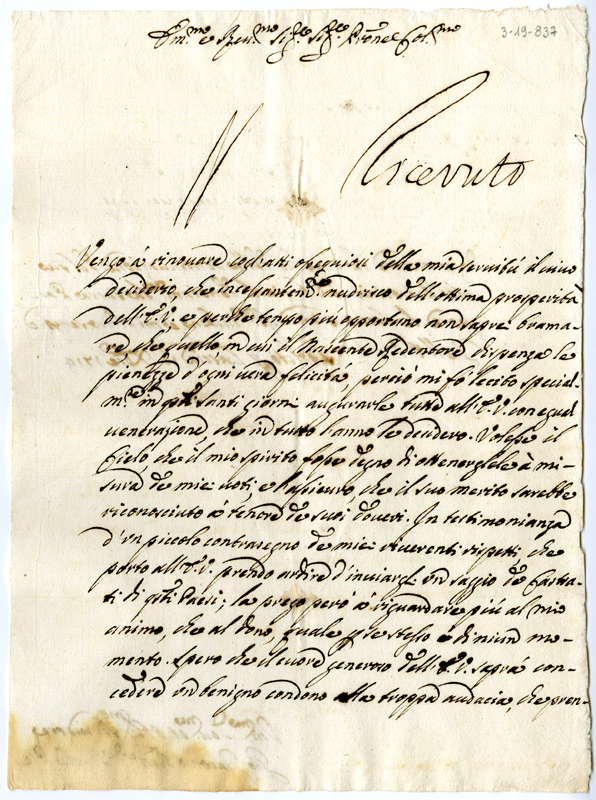 Em.mo e Rev.mo Sig.re Sig.re Prone Col.mo
3-19-837
Ricevuto
Vengo à rinovare cogl'atti ossequiosi della mia servitù il vivo
desiderio, che incessantem.te nudrisco dell'ottima prosperità
dell'E.V. e perche tempo più opportuno non saprei brama-
re che quello in cui il Nascente Redentore dispenza le
pienezze d'ogni vera felicità, perciò mi fò lecito special-
m.te in q.ti santi giorni augurarle tutte all'E.V. con egual
venerazione, che in tutto l'anno le desidero. Volesse il
Cielo, che il mio spirito fosse degno di ottenergliele à mi-
sura de miei voti, e l'assicuro, che il suo merito sarebbe
riconosciuto à tenore de suoi doveri. In testimonianza
d'un piccolo contrasegno de miei riverenti rispetti, che
porto all'E.V. prendo ardire d'inviargli un saggio de
di q.ti Paesi; la prego però à riguardare più al mio
animo, che al dono, quale p se stesso è di niun mo-
mento. Spero che il cuore generoso dell'E.V. saprà con-
cedere un benigno condono alla troppa audacia, che pren-